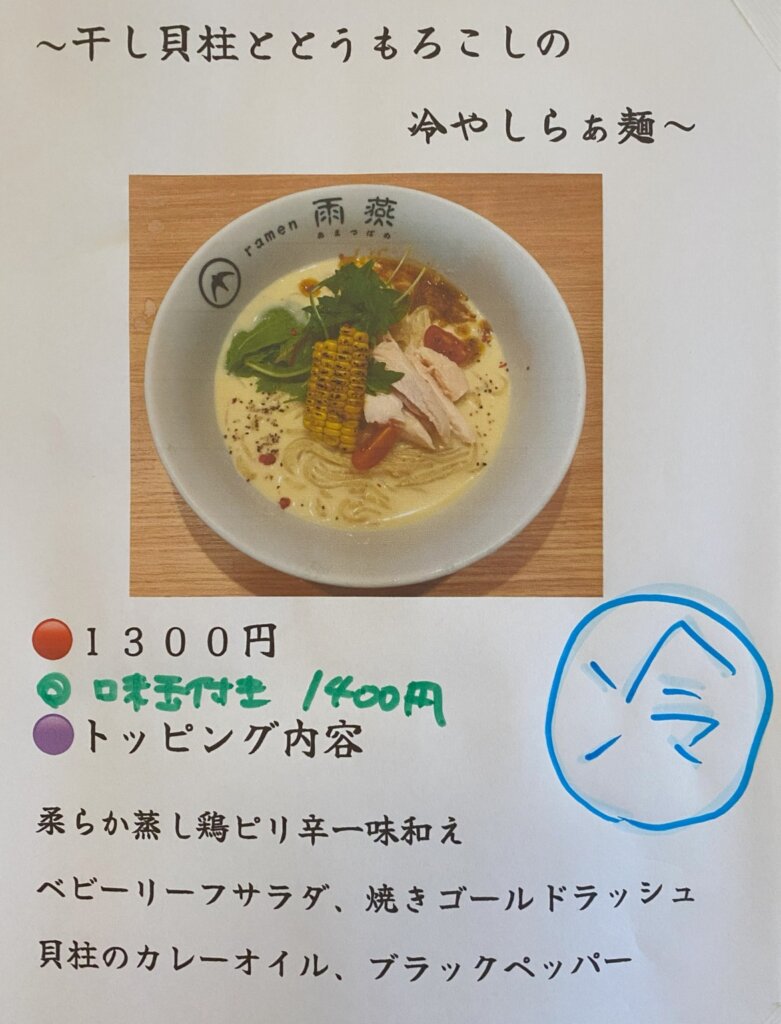 ～干し貝柱ととうもろこしの
冷やしらぁ麺～
ramen 雨燕
あまつばめ
１３００円
味玉付き 1400円
トッピング内容
冷
柔らか蒸し鶏ピリ辛一味和え
ベビーリーフサラダ、焼きゴールドラッシュ
貝柱のカレーオイル、ブラックペッパー